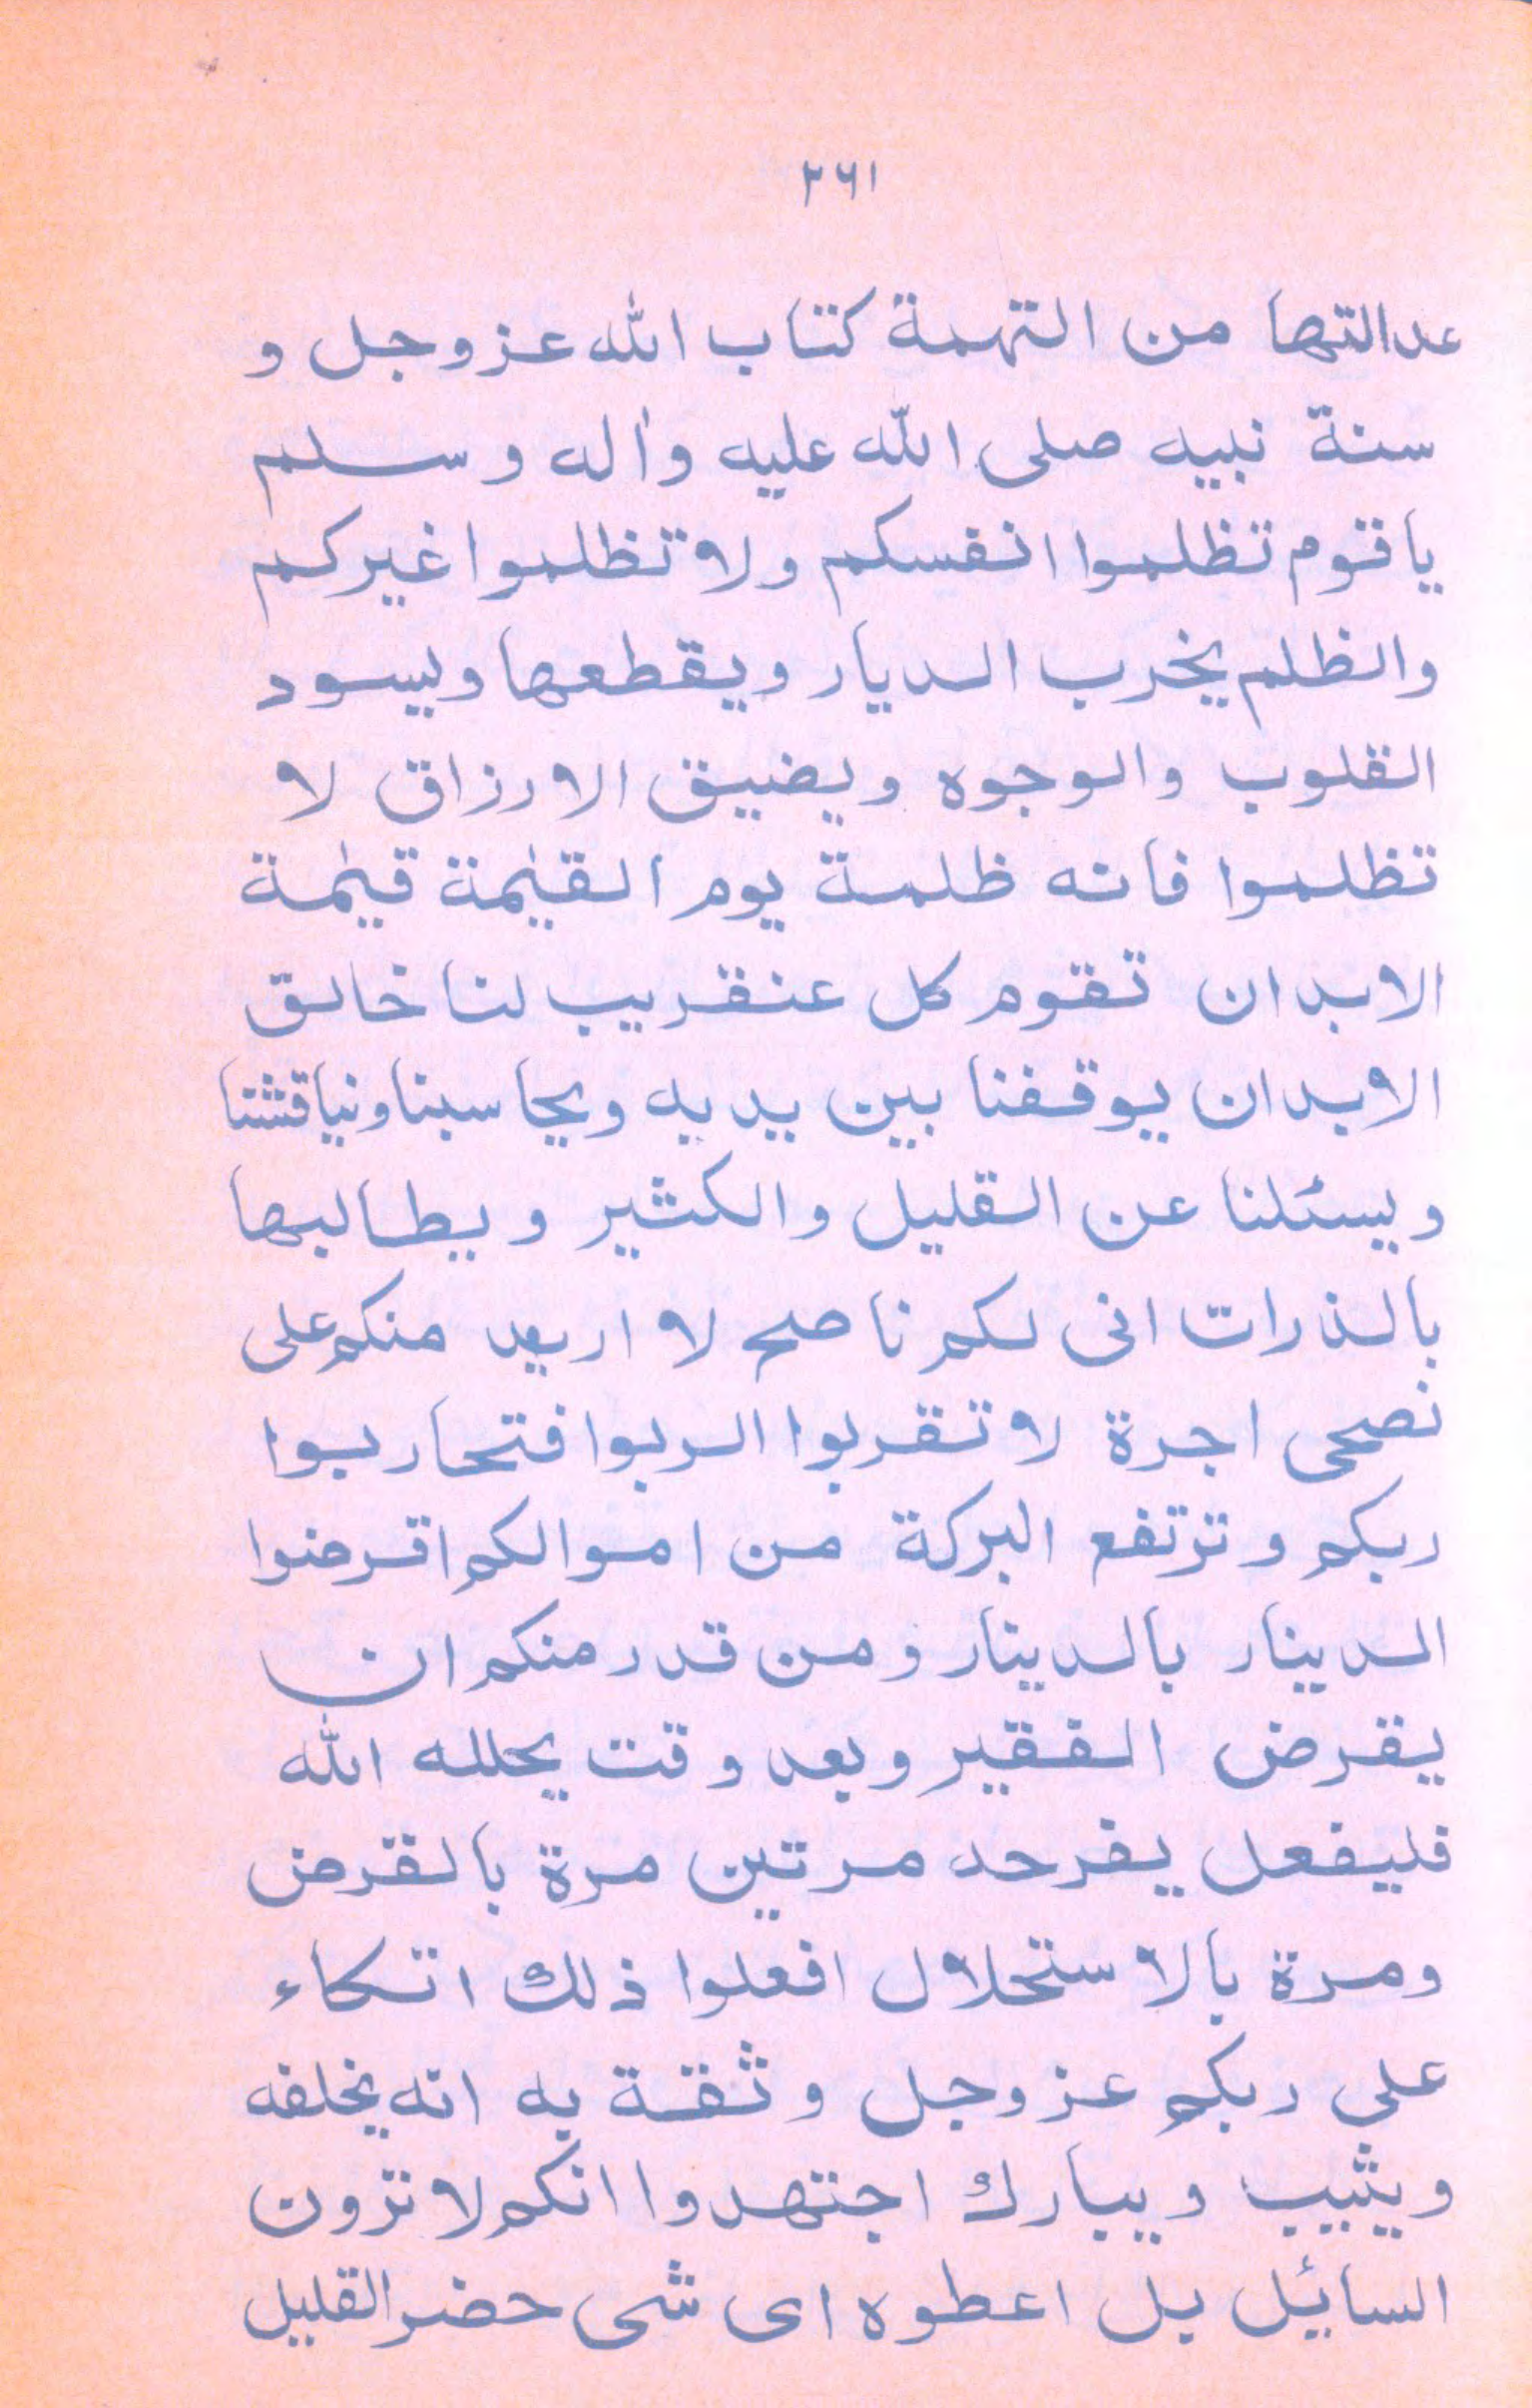 ٣٦١
عدالتها من التهمة كتاب الله عز وجل و
سنة نبيه صلى الله عليه واٰله وسلم
يا قوم تظلموا انفسكم ولا تظلموا غيركم
والظلم يخرب الديار ويقطعها ويسود
القلوب والوجوه ويضيق الارزاق لا
تظلموا فانه ظلمة يوم القيٰمة قيٰمة
الابدان تقوم كل عنقريب لنا خالق
الابدان يوقفنا بين يديه ويحاسبنا ونياقشنا
ويسئلنا عن القليل والكثير ويطالبها
بالذرات انى لكم ناصح لا اريد منكم على
نصحى اجرة لا تقربوا الربوا فتحاربوا
ربكم وترتفع البركة من اموالكم اقرضوا
الدينار بالدينار ومن قدر منكم ان
يقرض الفقير وبعد وقت يحلله الله
فليفعل يفرحد مرتين مرة بالقرض
ومرة بالاستحلال افعلوا ذلك اتكاء
على ربكم عز وجل وثقة به انه يخلفه
ويثيب ويبارك اجتهدوا انكم لا ترون
السائيل بل اعطوه اى شى حضر القليل